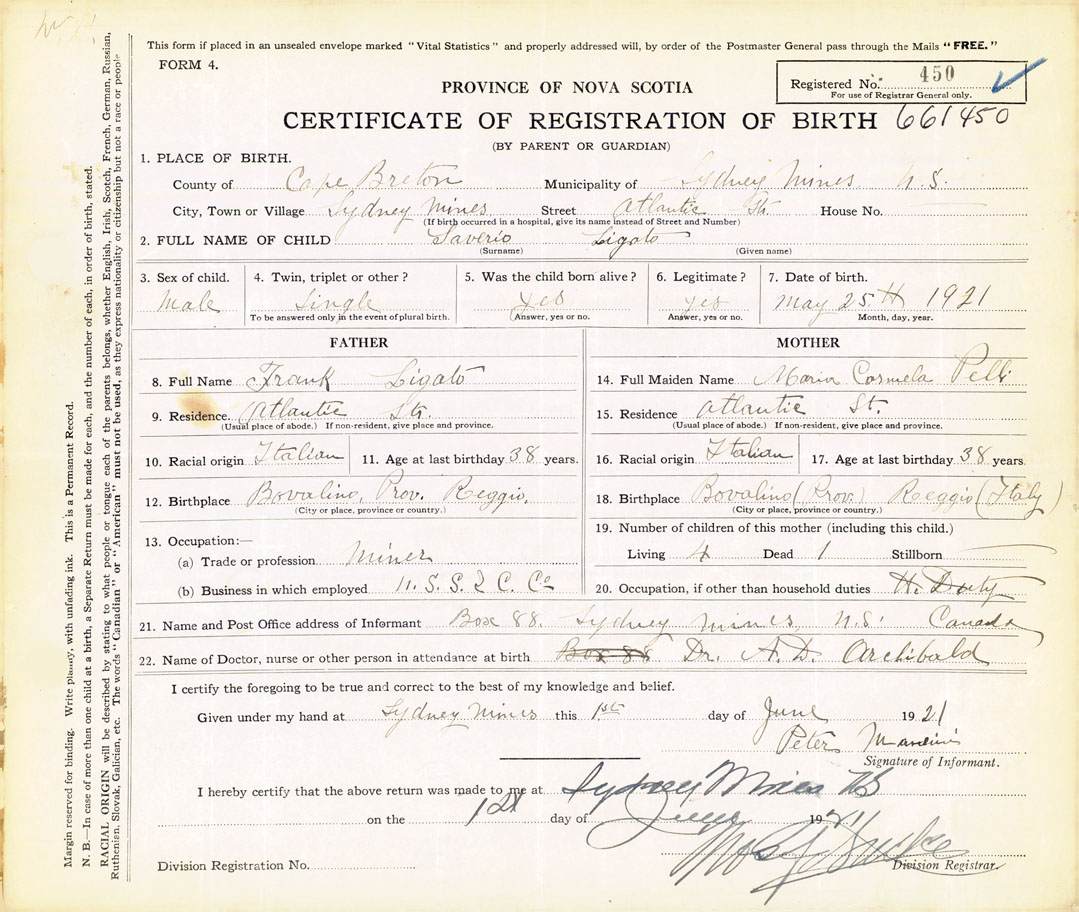 This form if placed in an unsealed envelope marked "Vital Statistics" and properly addressed will, by order of the Postmaster General pass through the Mails "FREE."
FORM 4.
Registered No. 450
For use of Registrar General only.
PROVINCE OF NOVA SCOTIA
CERTIFICATE OF REGISTRATION OF BIRTH 661450
(BY PARENT OR GUARDIAN)
1. PLACE OF BIRTH.
County of Cape Breton Municipality of Sydney Mines N.S.
City, Town or Village Sydney Mines Street Atlantic St. House No.
(If birth occurred in a hospital, give its name instead of Street and Number)
2. FULL NAME OF CHILD Saverio Ligato
(Surname) (Given name)
3. Sex of child. 4. Twin, triplet or other? 5. Was the child born alive? 6. Legitimate? 7. Date of birth.
Male Single yes yes May 25th 1921
To be answered only in the event of plural birth. (Answer, yes or no. Answer, yes or no. Month, day, year.
FATHER MOTHER
8. Full Name Frank Ligato 14. Full Maiden Name Maria Carmela Pelli
9. Residence Atlantic Str. 15. Residence Atlantic St.
(Usual place of abode.) If non-resident, give place and province. (Usual place of abode.) If non-resident, give place and province.
10. Racial origin Italian 11. Age at last birthday 38 years. 16. Racial origin Italian 17. Age at last birthday 38 years.
12. Birthplace Bovalino, Prov. Reggio, 18. Birthplace Bovalino (Prov.) Reggio (Italy)
(City or place, province or country.) (City or place, province or country.)
19. Number of children of this mother (including this child.)
13. Occupation:—
Living 4 Dead 1 Stillborn
(a) Trade or profession Miner
(b) Business in which employed N. S. S. & C. Co 20. Occupation, if other than household duties H. Duty
21. Name and Post Office address of Informant Box 88. Sydney Mines, N.S. Canada
22. Name of Doctor, nurse or other person in attendance at birth Box 88 Dr. A. D. Archibald
I certify the foregoing to be true and correct to the best of my knowledge and belief.
Given under my hand at Sydney Mines this 1st day of June 1921
Peter
Signature of Informant.
I hereby certify that the above return was made to me at Sydney Mines NS
on the 1st day of June 1921
Division Registration No. Division Registrar.
Margin reserved for binding. Write plainly, with unfading ink. This is a Permanent Record.
N. B.—In case of more than one child at a birth, a Separate Return must be made for each, and the number of each, in order of birth, stated.
RACIAL ORIGIN will be described by stating to what people or tongue each of the parents belongs, whether English, Irish, Scotch, French, German, Russian,
Ruthenian, Slovak, Galician, etc. The words "Canadian" or "American" must not be used, as they express nationality or citizenship but not a race or people.